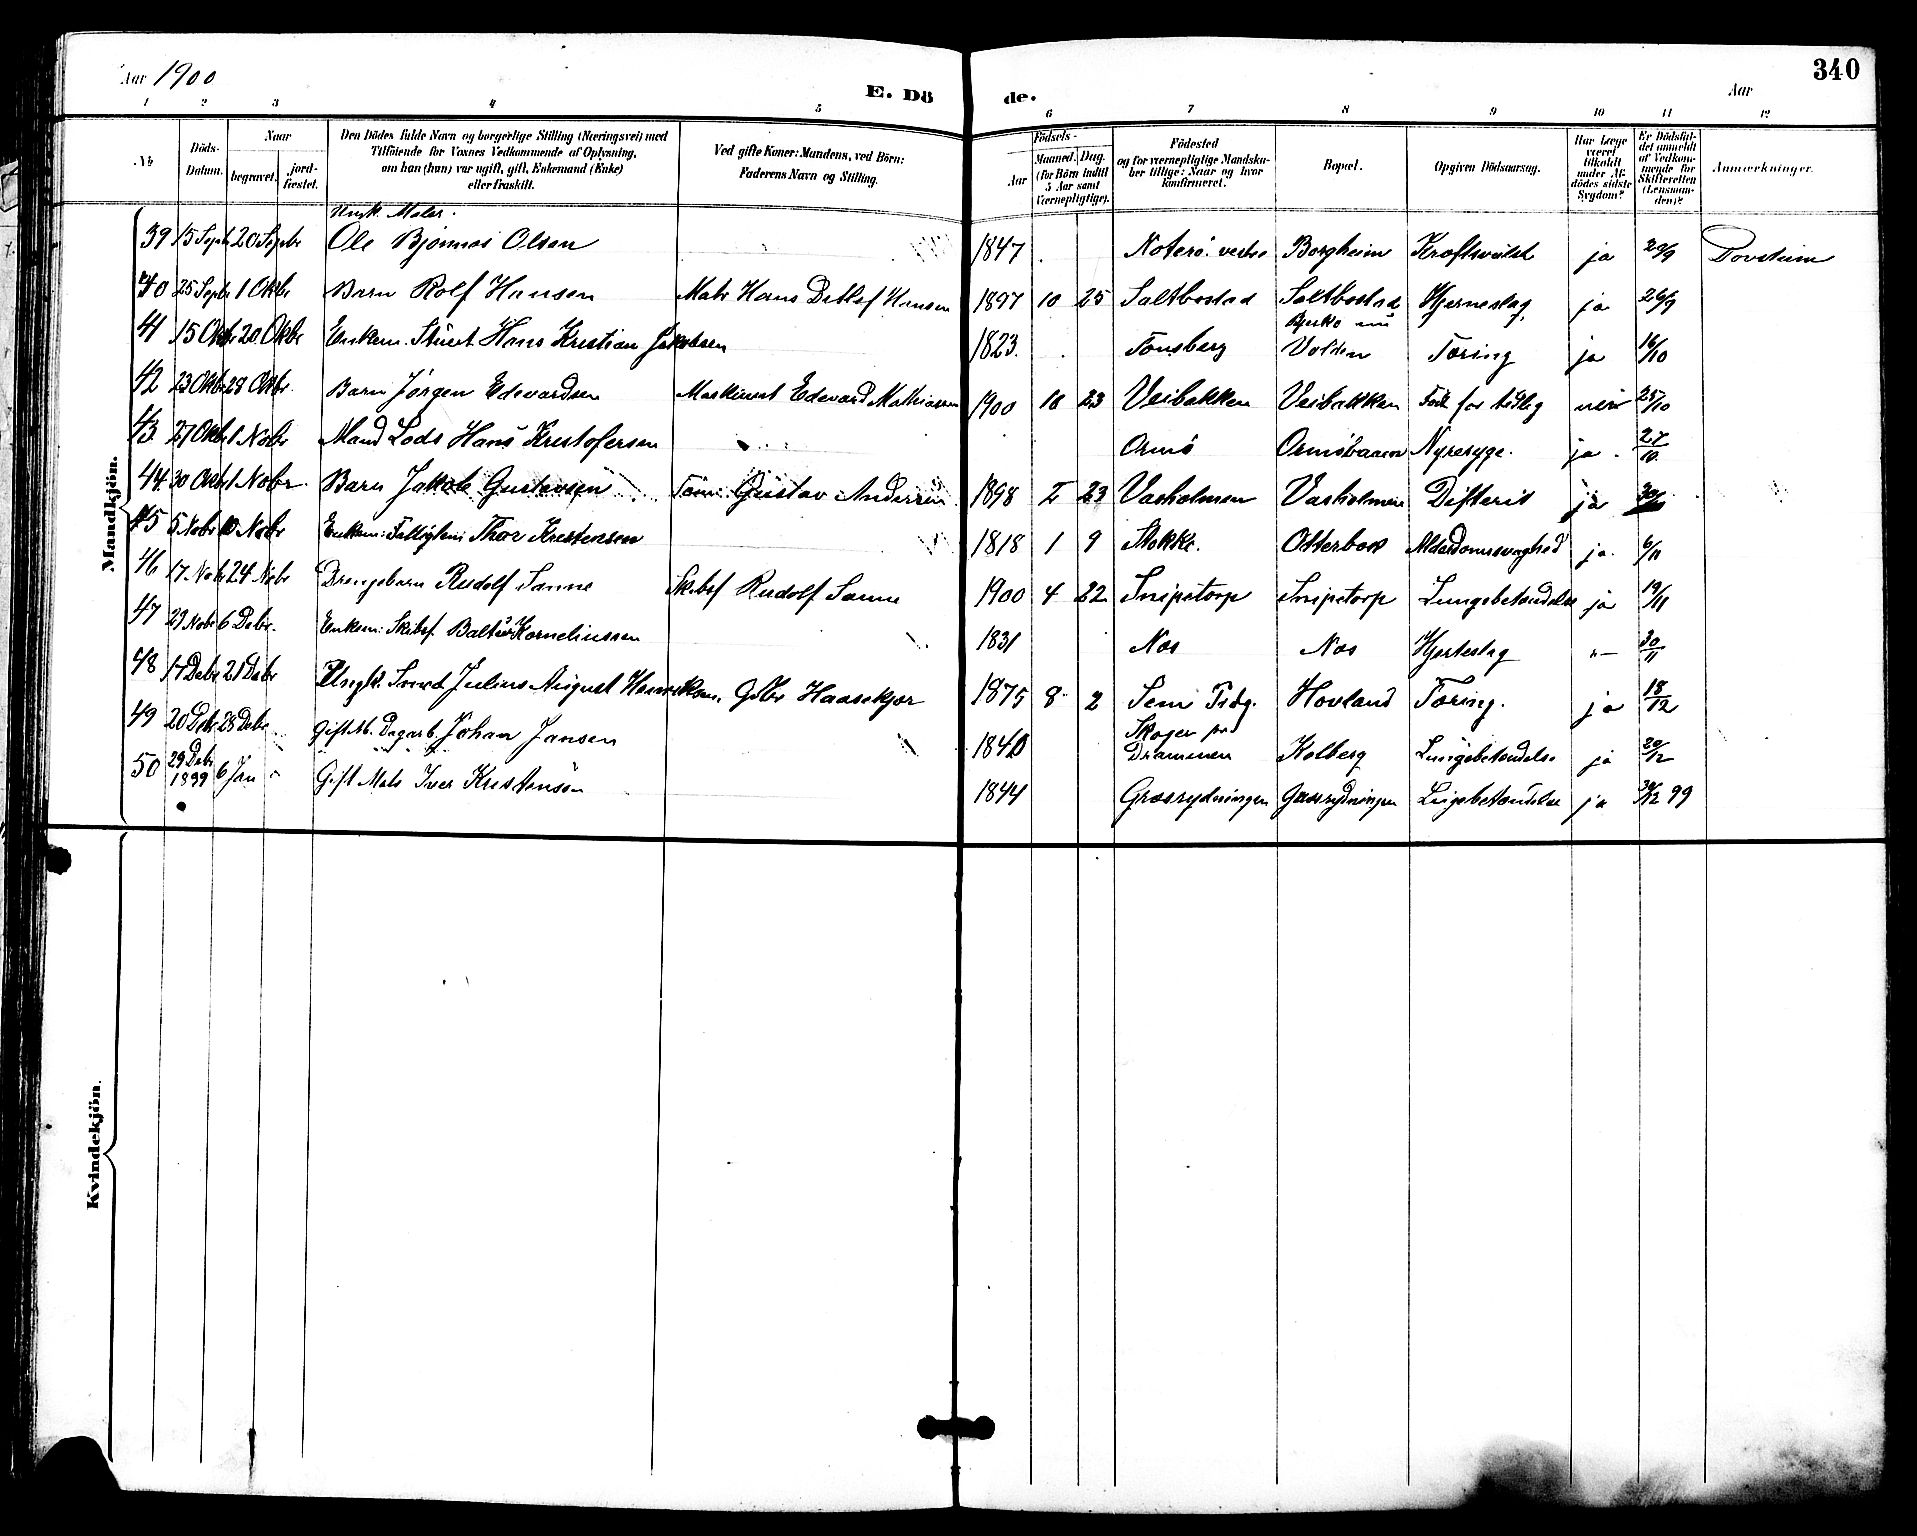 Aar 1900
E. Dö de.
Aar
340
1 2 3 4 5 6 7 8 9 10 11 12
No
Döds-Datum.
Naar
begravet.
jord-fæstet.
Den Dödes fulde Navn og borgerlige Stilling (Næringsvei) med Tilföiende for Voxnes Vedkommende af Oplysning, om han (hun) var ugift, gift, Enkemand (Enke) eller fraskilt.
Ved gifte Koner: Mandens, ved Börn: Faderens Navn og Stilling.
Födsels-
Aar
Maaned. Dag.
(for Börn indtil 5 Aar samt Værnepligtige).
Födested
og for værnepligtige Mandskaber tillige: Naar og hvor konfirmeret.
Bopæl.
Opgiven Dödsaarsag.
Har Læge været tilkaldt under Afdödes sidste Sygdom?
Er Dödsfaldet anmeldt af Vedkommende for Skifteretten (Lensmanden)?
Anmærkninger.
Mandkjön.
39 15 Septr 20 Septbr Ungk. Maler. Ole Bjönnes Olsen 1847 Noterö. vestre Borgheim Kræftsvulst ja 20/9
40 25 Septr 1 Okbr Barn Rolf Hansen Matr Hans Detlef Hansen 1897 10 25 Saltbostad Saltbostad Hjerneslag ja 26/9
41 15 Okbr 20 Okbr Enkem. Stuert Hans Kristian Jakobsen 1823 Tonsberg Volden Tæring ja 16/10
42 23 Okbr 28 Okbr Barn Jörgen Edevardsen Maskinist Edevard Mathiasen 1900 10 23 Veibakken Veibakken Födt for tidlig nei 25/10
43 27 Okbr 1 Nobr Mand Lods Hans Kristofersen Ormö Nyresyge. ja 27/10
44 30 Okbr 1 Nobr Barn Jakob Gustavsen Töm. Gustav Andersen 1898 2 23 Vasholmen Vasholmen Difterit ja 30/10
45 5 Nobr 10 Nobr Enkem: Fattiglem Thor Kristensen 1818 1 9 Stokke. Otterbæk Alderdomssvaghed ja 6/11
46 17 Nobr 24 Nobr Drengebarn Rudolf Sanne Skibsf Rudolf Sanne 1900 4 22 Snipetorp Snipetorp Lungebetændelse ja 19/11
47 29 Nobr 6 Debr. Enkem: Skibsf. Baltser Korneliussen 1831 Nes Nes Hjerteslag "— 30/11
48 17 Debr 21 Debr Ungk. Smed Julius August Henriksen. Gdbr Haasekjær 1875 8 2 Sem Tidg. Hovland Tæring. ja 18/12
49 20 Debr 28 Debr Gift Ab. Dagarb. Johan Jansen 1840 Skoger ved Drammen Kolberg Lungebetændelse ja 20/12
50 29 Debr 1899 6 Jan Gift Mats Iver Kristensen 1844 Græsrydningen Græsrydningen Lungebetændelse ja 30/12 99
Kvindekjön.